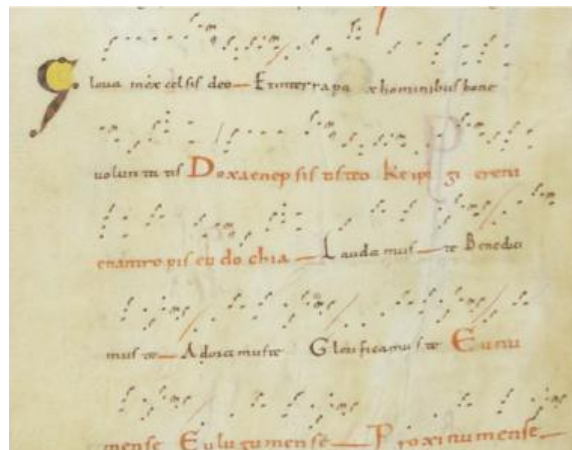 Gloria inexcelsis deo Etinterrapa xhominibus bone
uolun ta tis Doxaenepsis tisteo Keipi gi ereni
enantropis eu do chia Lauda mus te Benedici
mus te Adora muste Glorificamus te Eunu
mense Eulugumense Proxinumense